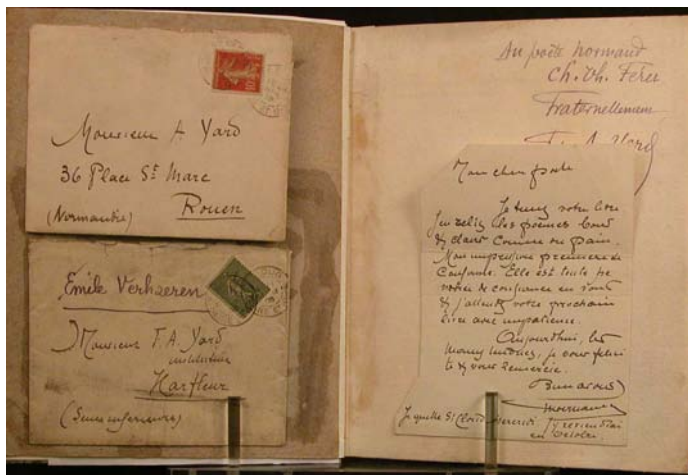 Monsieur A Yard
36 Place St Marc
Rouen
(Normandie)
Emile Verhaeren
Monsieur F. A. Yard
instituteur
Harfleur
(Seine inférieure)
Au poète normand
Ch. Th. Féret
Fraternellement
Mon cher poète
Je tenez votre livre
J'en relis les poèmes bons
& clairs comme du pain.
Mon impression première se
confirme. Elle est toute
de confiance en vous
& j'attends votre prochain
livre avec impatience.
Aujourd'hui, les
je vous félici
te & vous remercie.
Je quitte St Cloud mercredi. J'y reviendrai
en octobre.